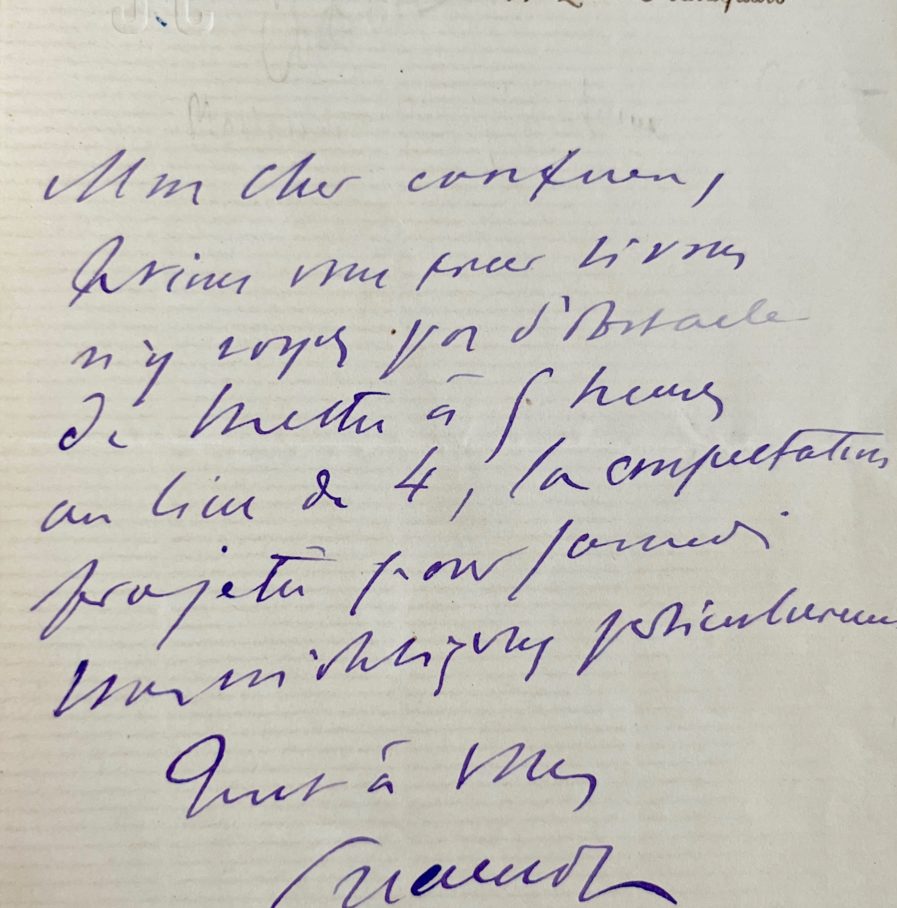 Mon Cher confrère,
Je viens vous prier si vous
n'y voyez pas d'obstacle
de mettre à 5 heures
au lieu de 4, la consultation
projetée pour samedi
vous m'obligerez particulièremen
Tout à vous
Charcot